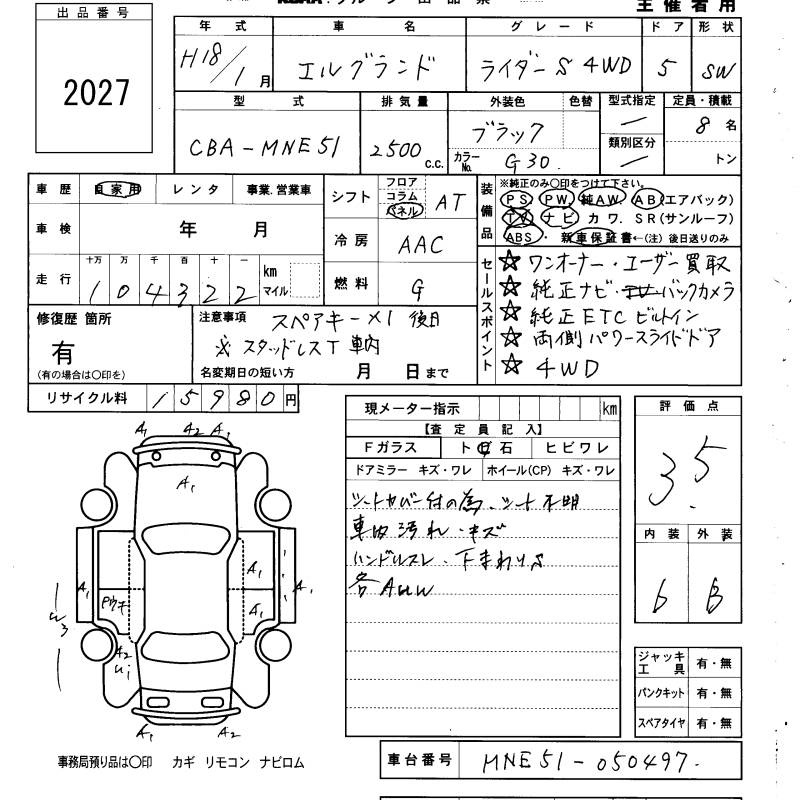 主催者用
出品番号
2027
年式 車名 グレード ドア 形状
H18/1月 エルグランド ライダーS 4WD 5 SW
型式 排気量 外装色 色替 型式指定 定員・積載
CBA-MNE51 2500c.c. ブラック 8名
カラーNo. G30 類別区分 トン
車歴 自家用 レンタ 事業.営業車
車検 年 月
走行 十万 万 千 百 十 一
104322 km マイル
シフト フロア コラム パネル AT
冷房 AAC
燃料 G
装備品 ※純正のみ〇印をつけて下さい。
PS PW 純AW AB(エアバック)
TV ナビ カワ. SR(サンルーフ)
ABS・新車保証書←(注)後日送りのみ
セールスポイント
☆ワンオーナー・ユーザー買取
☆純正ナビ・バックカメラ
☆純正ETCビルトイン
☆両側パワースライドドア
☆4WD
修復歴 箇所
有
(有の場合は〇印を)
注意事項 スペアキー×1 後日
※スタッドレスT 車内
名変期日の短い方 月 日まで
リサイクル料 15980円
現メーター指示 km
【査定員記入】
Fガラス トビ石 ヒビワレ
ドアミラー キズ・ワレ ホイール(CP) キズ・ワレ
シートカバー付の為、シート不明
車内汚れ・キズ
ハンドルスレ・下まわりS
各AUW
評価点
3.5
内装 外装
6 B
ジャッキ工具 有・無
パンクキット 有・無
スペアタイヤ 有・無
A1 A2 A1
A1
A1 A1 A1
Pウチ A1
W3
A2
U1
A1 A2
事務局預り品は〇印 カギ リモコン ナビロム
車台番号 MNE51-050497.